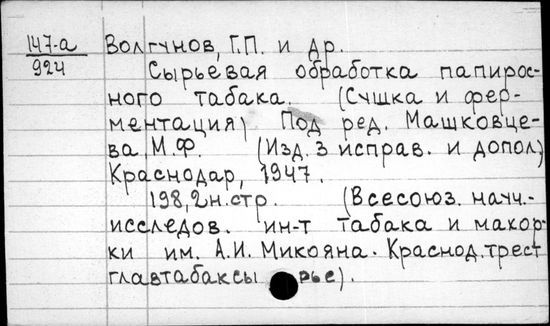 147-а Волгунов, Г.П. и др.
924
Сырьевая обработка папирос-
ного табака. (Сушка и фер-
ментация) Под ред. Машковце-
ва, М.Ф. (Изд. 3 исправ. и допол)
Краснодар, 1947.
198, 2 н. стр. (Всесоюз. науч.-
исследов. ин-т табака и махор-
ки им. А.И. Микояна. Краснод. трест
главтабаксы рье).